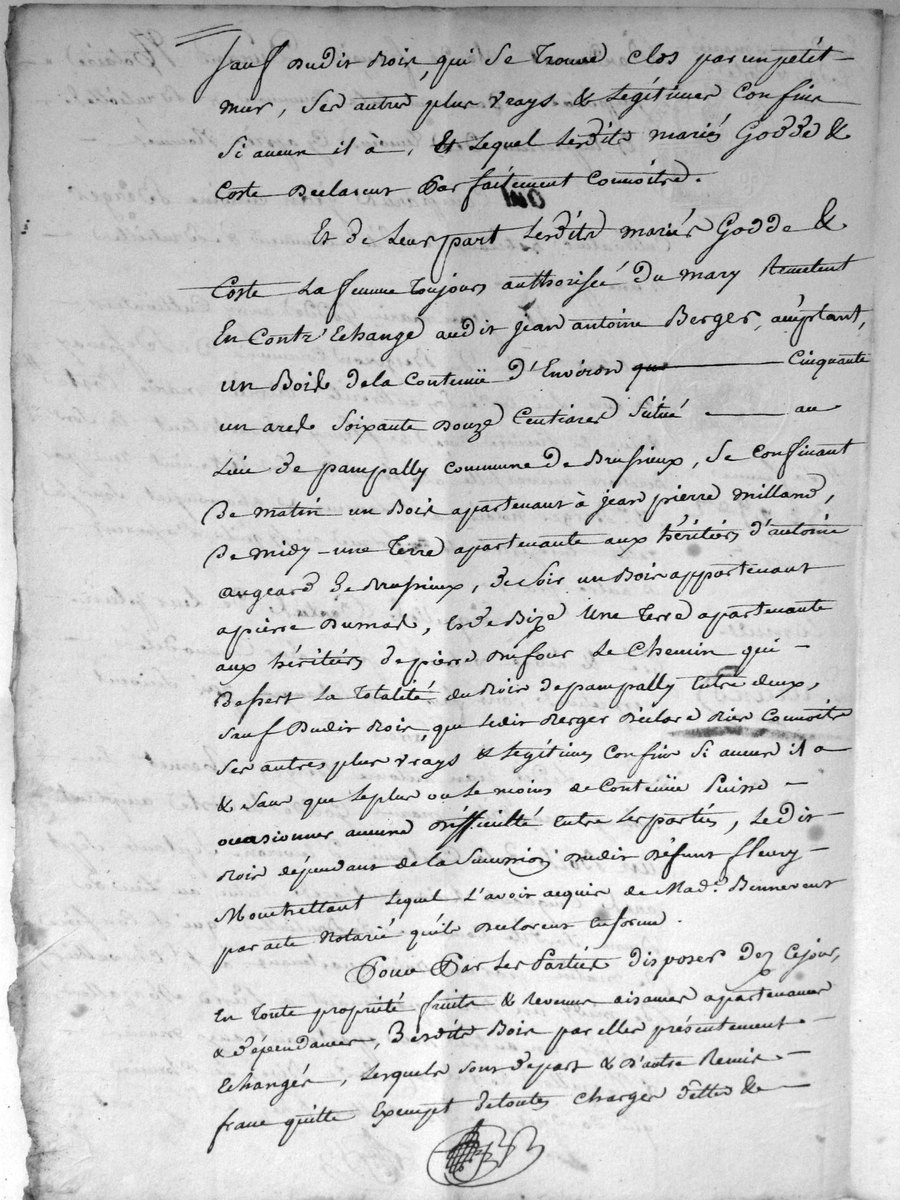 sauf dudit bois, qui se trouve clos par un petit
mur, ses autres plus vrays & légitimes confins
si aucun il à, et lequel lesdits mariés Godde &
Coste declarent parfaitement connoitre.
Et de leur part lesdits mariés Godde &
Coste la femme toujours authorisée du mary remetent
en contr'Echange audit jean antoine Berger, acceptant,
un Bois de la Contenüe d'Environ Cinquante
un ares soixante douze Centiares situé au
Lieu de pampally commune de Brussieux, se confinant
de matin un Bois apartenant à jean pierre milland,
de midy une Terre apartenante aux héritiers d'antoine
angeard de Brussieux, de soir un Bois appartenant
a pierre Dumas, et de Bize une Terre apartenante
aux héritiers de pierre Dufour le Chemin qui
dessert la Totalité du Bois de pampally Entre deux,
sauf dudit Bois, que ledit Berger déclare bien connoitre
ses autres plus vrays & légitimes confins si aucun il a
& sans que le plus ou le moins de Contenüe puisse
occasionner aucune difficulté entre les parties, le dit
Bois dépendant de la succession dudit défunt fleury
lequel l'avoit acquis de Mad.e
par acte Notarié qu'ils declarent en forme.
Pour par les Parties disposer dez ce jour,
En toute propriété fruits & revenus aisances apartenances
& dépendances, desdits Bois par elles présentement
Echangés, lesquels sont de part & d'autre Remis
franc quitte Exempt de toutes charges dettes &